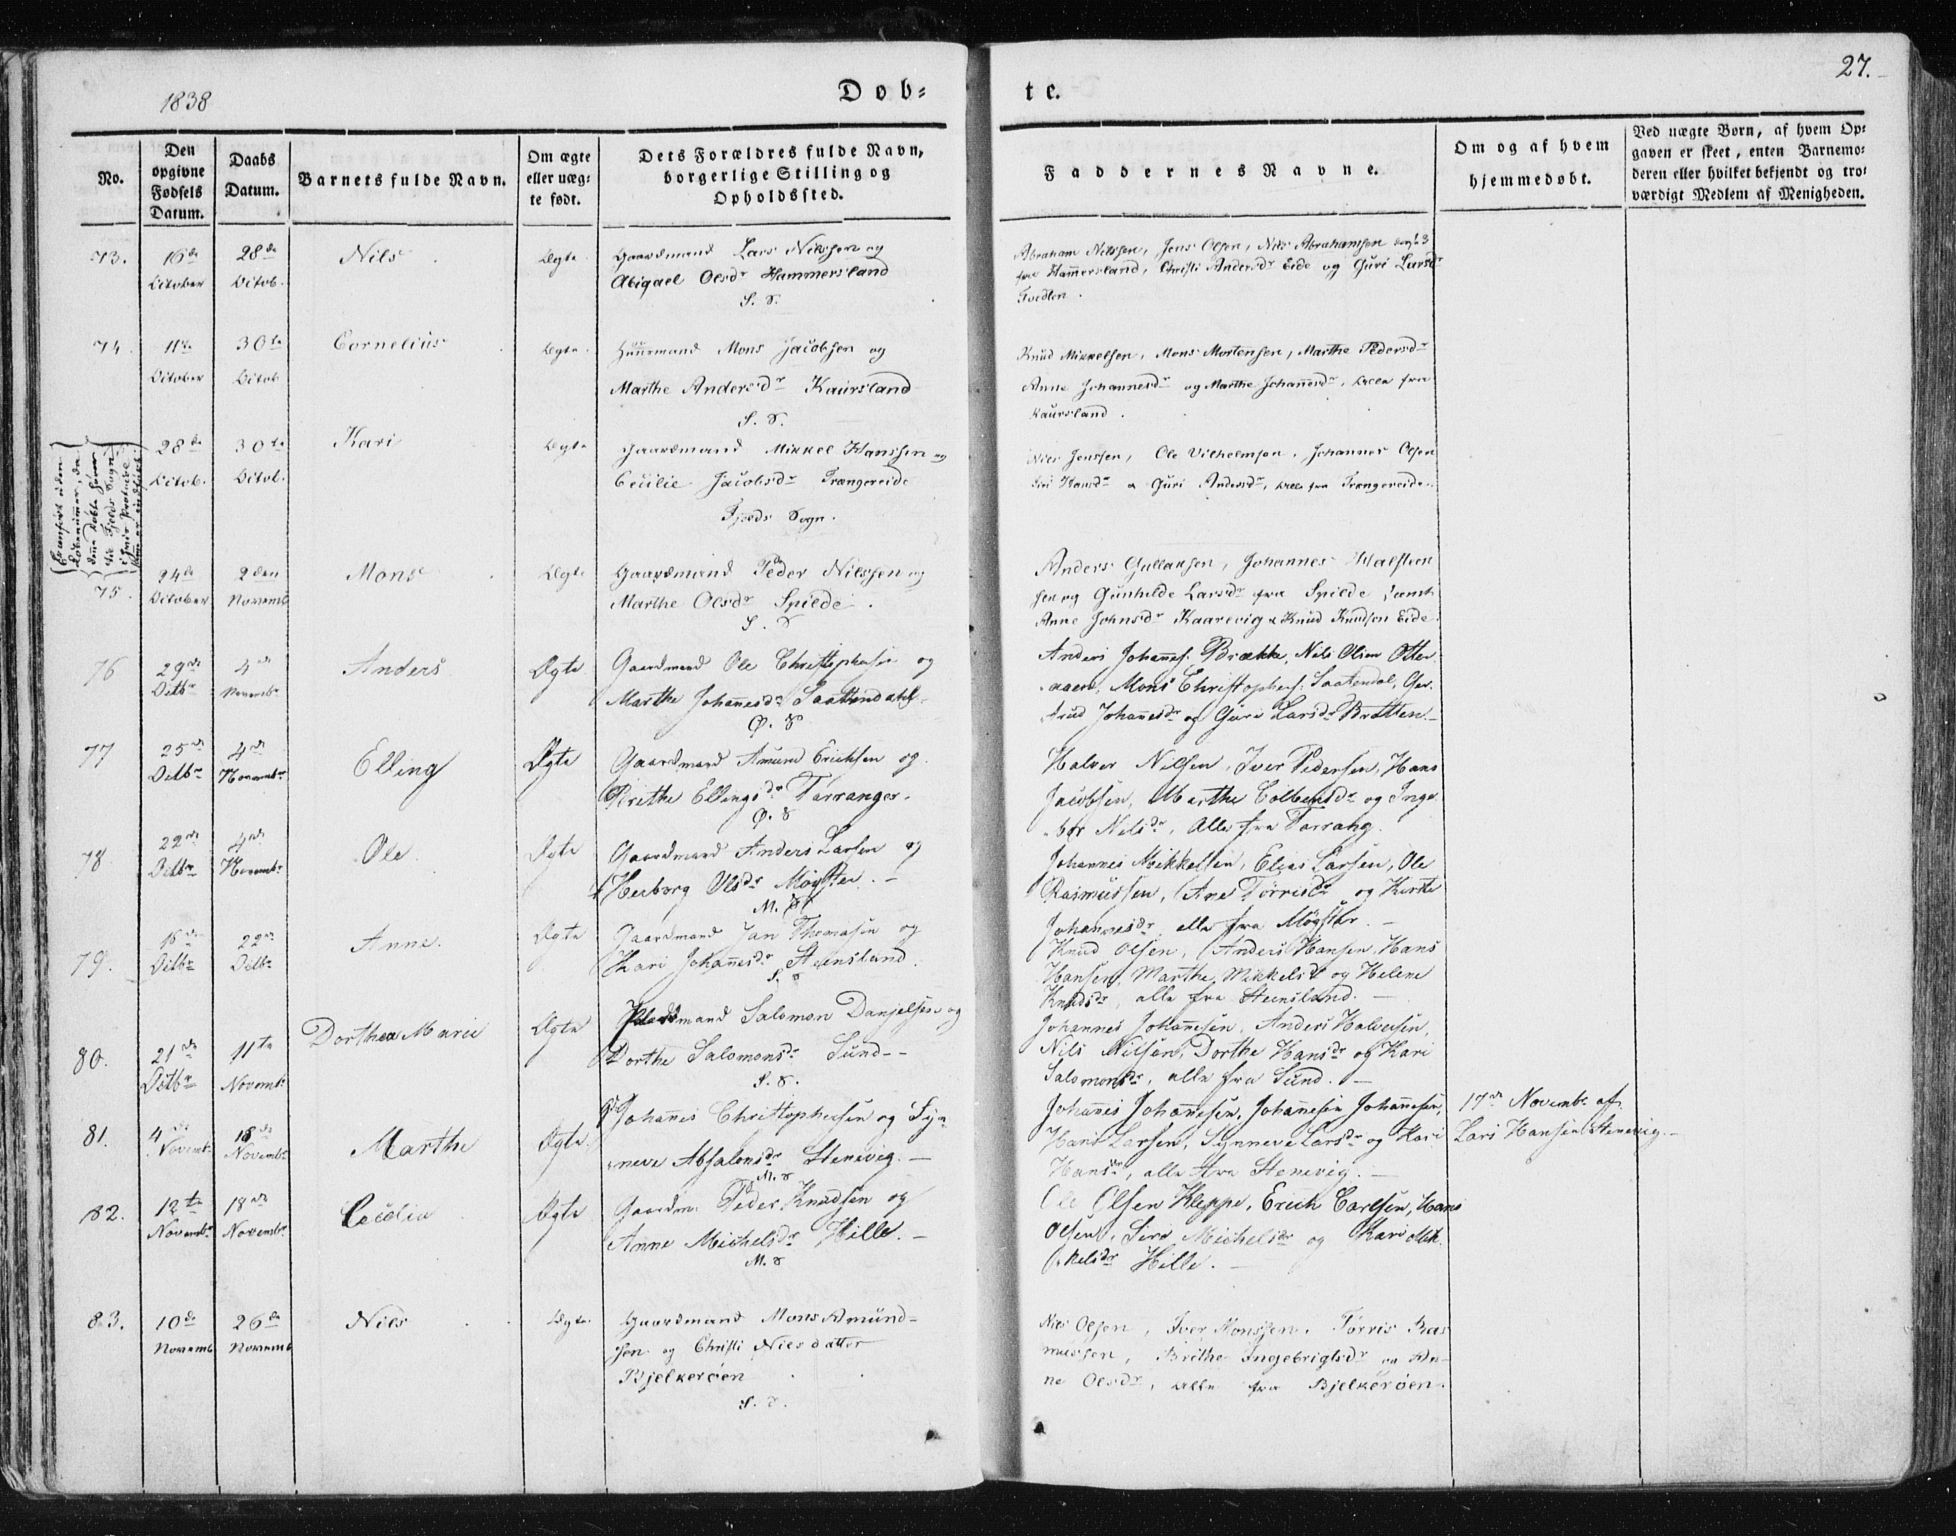 1838
Døb=
te.
27.
No.
Den
opgivne
Fødsels
Datum.
Daabs
Datum.
Barnets fulde Navn.
Om ægte
eller uæg-
te født.
Dets Forældres fulde Navn,
borgerlige Stilling og
Opholdssted.
Faddernes Navne.
Om og af hvem
hjemmedøbt.
Ved uægte Børn, af hvem Op-
gaven er skeet, enten Barnemo-
deren eller hvilket bekjendt og tro-
værdigt Medlem af Menigheden.
73.
16de
October
28de
Octob.
Nils
Ægte
Gaardmand Lars Nilssen og
Abigael Olsdr Hammersland
S. S.
Abraham Nilssen, Jens Olsen, Nils Abrahamsen
fra Hammersland, Christi Andersdr Eide og Guri Larsdr
Tvedten.
74.
11te
October
30te
Octob.
Cornelius
Ægte.
Huusmand Mons Jacobsen og
Marthe Andersdr Kaursland
S. S.
Knud Mikkelsen, Mons Mortensen, Marthe Pedersdr
Anne Johannesdr og Marthe Johanesdr, alle fra
Kaursland.
28de
Octob.
30te
Octob.
Kari
Ægte
Gaardmand Mikkel Hanssen og
Cecilie Jacobsdr Trængereide
Fjelds Sogn.
Niels Jenssen, Ole Vilhelmsen, Johannes Olsen
Siri Hansdr & Guri Andersdr, alle fra Trængereide.
75.
24de
October
2den
Novemb
Mons
Ægte
Gaardmand Peder Nilssen og
Marthe Olsdr Spilde.
S. S
Anders Gullaksen, Johannes Halsteen
sen og Gunhilde Larsdr fra Spilde samt
Anne Johnsdr Kaarevig & Knud Knudsen Eide
76
29de
Octbr
4de
Novembr
Anders
Ægte
Gaardmand Ole Christophersen og
Marthe Johanesdr Saattendahl
Ø. S
Anders Johannes. Brække, Nils Olsen Otter
aaen, Mons Christophers. Saatendal, Ger-
trud Johanesdr og Guri Larsdr Bratten
77
25de
Octbr
4de
Novembr
Elling
Ægte
Gaardmand Amund Erichsen og
Brithe Ellingsdr Torranger.
Ø. S
Halvor Nilsen, Iver Pedersen, Hans
Jacobsen, Marthe Colbensdr og Inge
bor Nilsdr, Alle fra Torrang.
78
22de
Octbr
4de
Novembr
Ole
Ægte
Gaardmand Anders Larsen og
Herborg Olsdr Møgster.
M. S
Johannes Mikkelsen, Elias Larsen, Ole
Rasmussen, Ane Torrisdr og Kirste
Johannesdr, alle fra Møgster.
79.
Octbr
22de
Octbr
Anne.
Ægte
Gaardmand Jan Thomasen og
Kari Johanesdr Steensland.
S. S
Knud Olsen, Anders Hansen, Hans
Hansen, Marthe Mikkelsdr og Helene
Knudsdr, alle fra Steensland.
80.
21de
Octbr
11te
Novembr
Dorthea Marie
Ægte
Salomon Danjelsen og
Dorthe Salomonsdr Sund
S. S.
Johannes Johanesen, Anders Halvorsen,
Nils Nilsen, Dorthe Hansdr og Kari
Salomonsdr, alle fra Sund.
81.
4de
Novembr
18de
Novembr
Marthe
Ægte
Johannes Christophersen og Syn
neve Absalonsdr Stenevig.
M. S
Johanes Johanesen, Johanesen Johanesen,
Hans Larsen, Synneve Larsdr og Kari
Hansdr, alle fra Stenevig.
17de Novembr af
Lars Hansen Stenevig.
82.
12te
Novembr
18de
Novembr
Cecilia
Ægte
Gaardm. Peder Knudsen og
Anne Michelsdr Hille.
M. S
Ole Olsen Kleppe, Erich Carlsen, Hans
Olsen, Siri Michelsdr og Kari Mik
kelsdr Hille.
83.
10de
Novemb
26de
Novemb
Nils
Ægte.
Gaardmand Mons Amund-
sen og Christi Nilsdatter
Bjelkerøen
S. S.
Nils Olsen, Iver Monssen, Tørris Ras
mussen, Brithe Ingebrigtsdr og An-
ne Olsdr, alle fra Bjelkerøen.